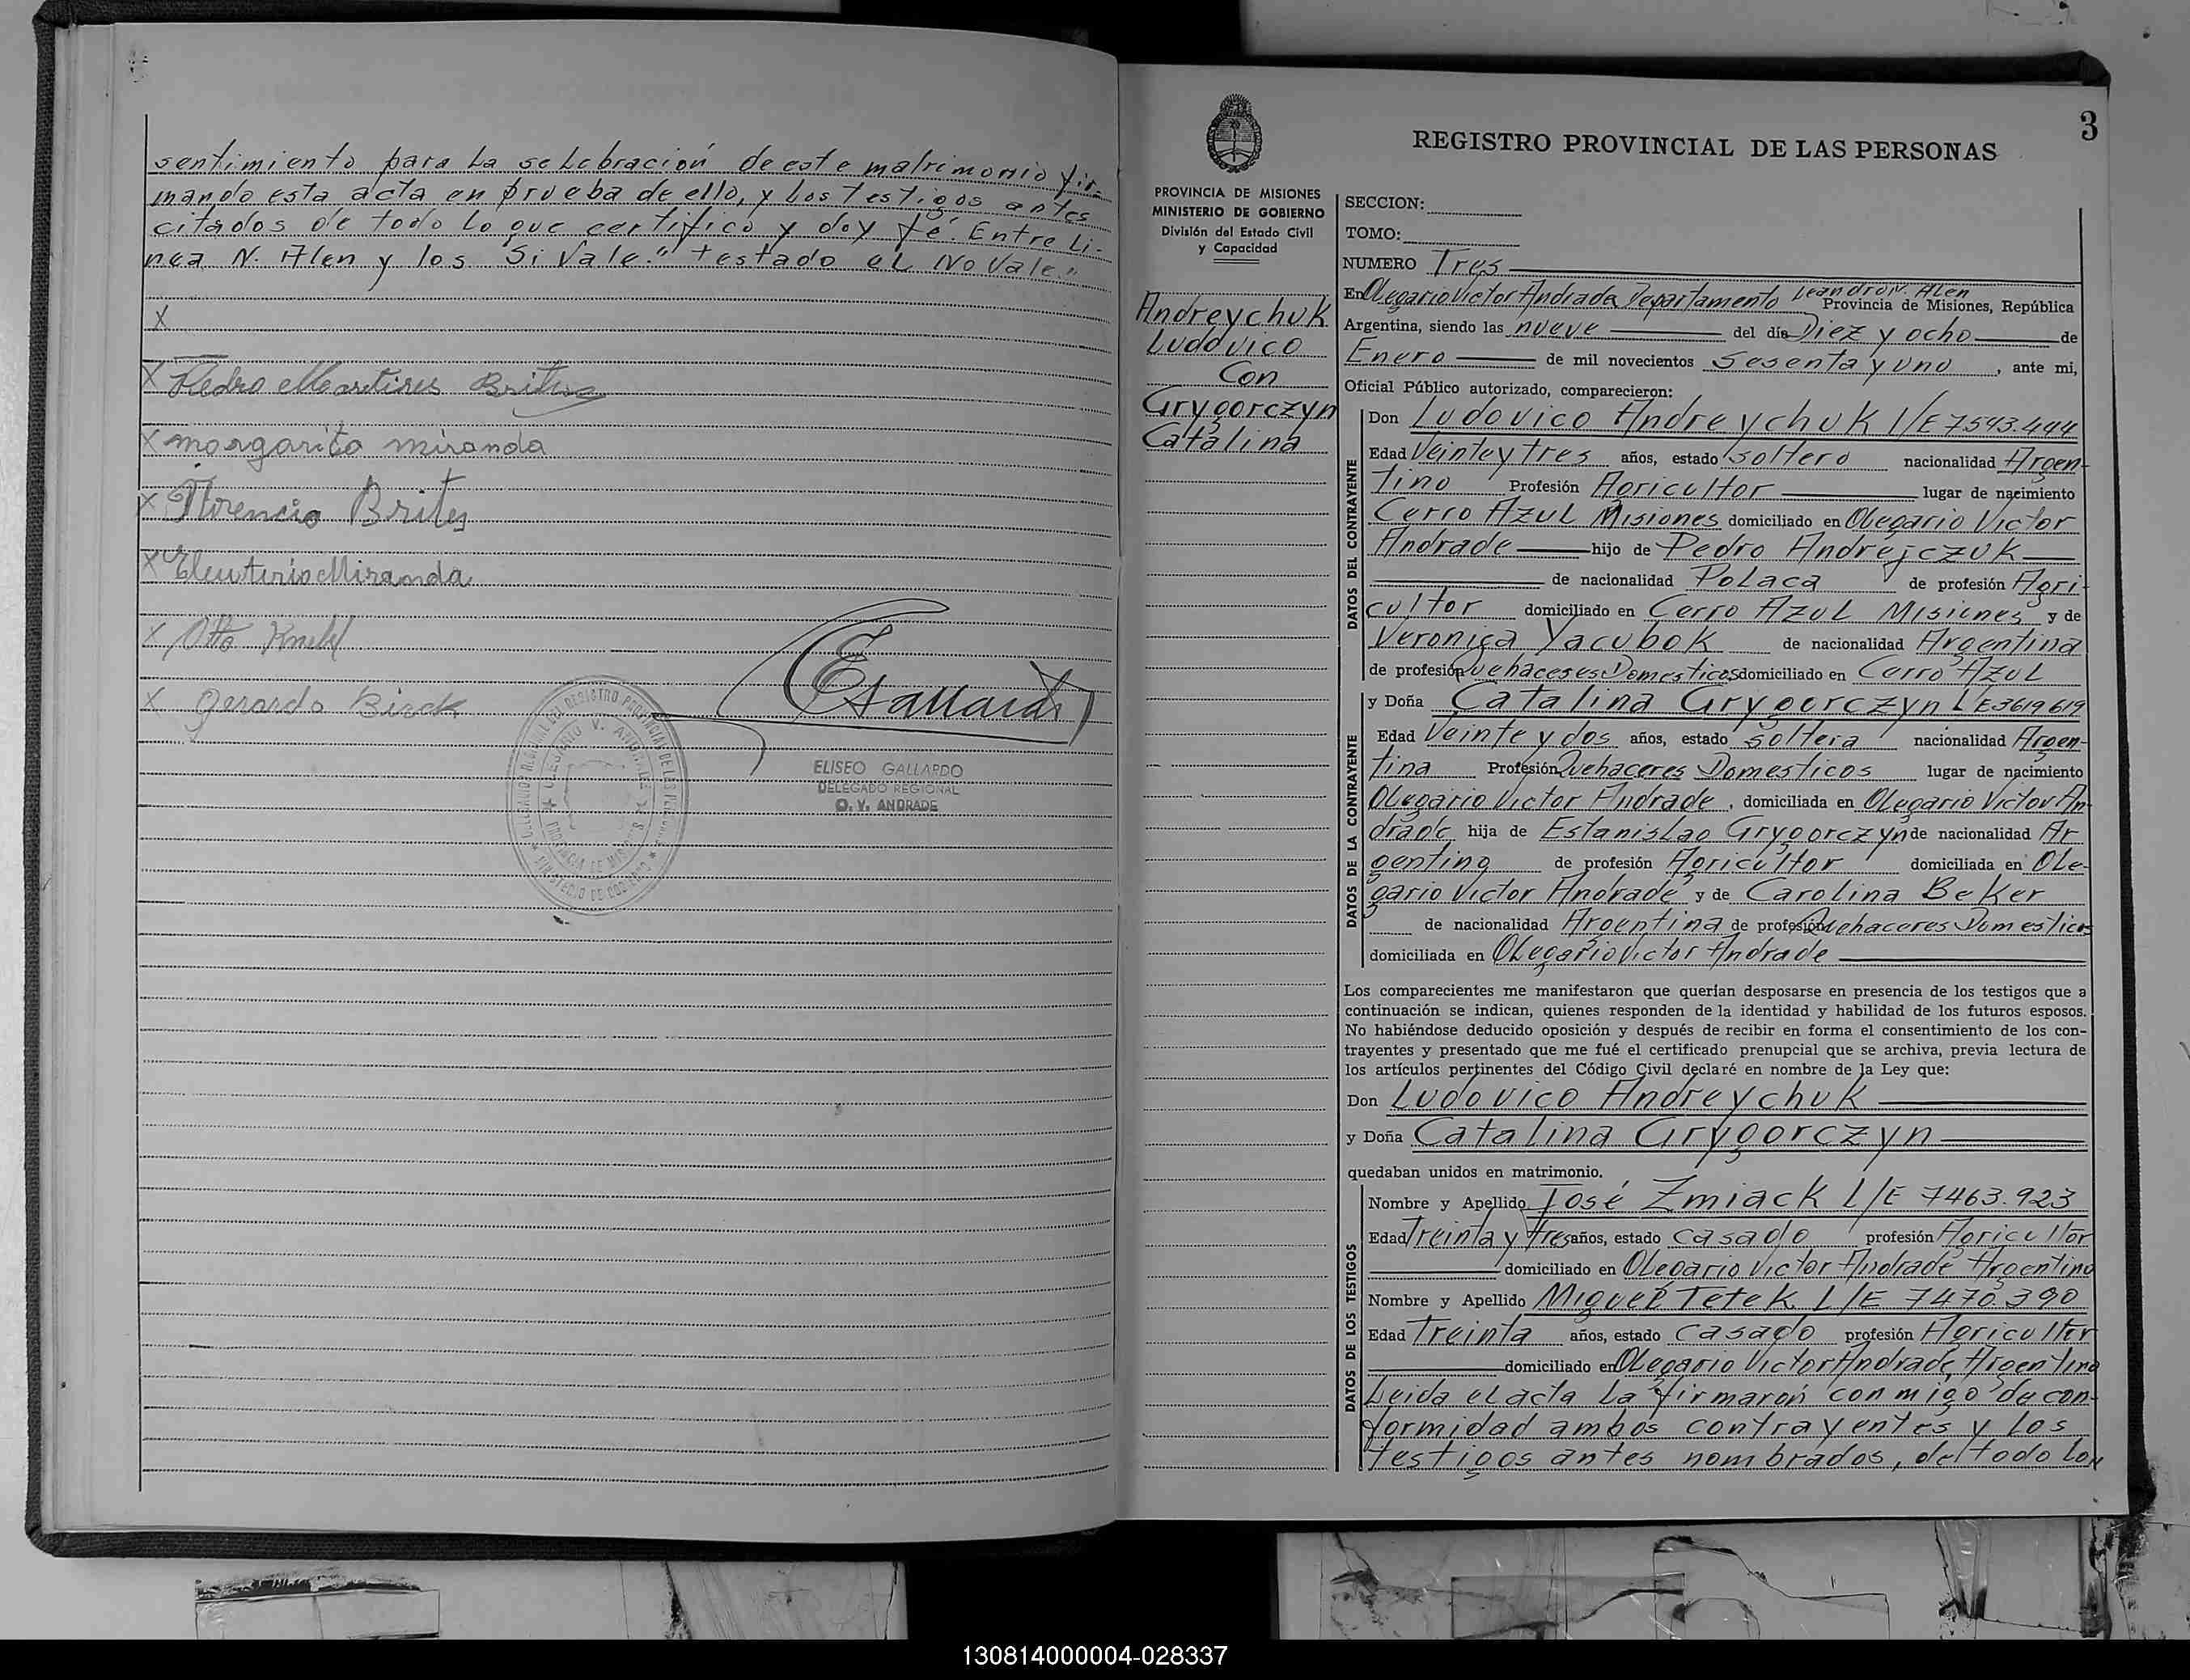 sentimiento para la selebración de este matrimonio fir-
mando esta acta en prueba de ello, y los testigos antes
citados de todo lo que certifico y doy fé. Entre Li-
nea N. Alen y los "Si Vale." testado el No Vale."
X
X Pedro Martires Britez
X margarita miranda
X Florencio Brites
X Eleuterio Miranda
X Otto Knebel
X Gerardo Birck
EGallardo
ELISEO GALLARDO
DELEGADO REGIONAL
O. V. ANDRADE
3
REGISTRO PROVINCIAL DE LAS PERSONAS
PROVINCIA DE MISIONES
MINISTERIO DE GOBIERNO
División del Estado Civil
y Capacidad
Andreychuk
Ludovico
Con
Grygorczyn
Catalina
SECCION:
TOMO:
NUMERO Tres
En Olegario Victor Andrade Departamento Leandro N. Alen Provincia de Misiones, República
Argentina, siendo las nueve del día Diez y ocho de
Enero de mil novecientos Sesenta y uno, ante mi,
Oficial Público autorizado, comparecieron:
DATOS DEL CONTRAYENTE
Don Ludovico Andreychuk L/E 7543.444
Edad Veinte y tres años, estado soltero nacionalidad Argen-
tino Profesión Agricultor lugar de nacimiento
Cerro Azul Misiones domiciliado en Olegario Victor
Andrade hijo de Pedro Andrejczuk
de nacionalidad Polaca de profesión Agri-
cultor domiciliado en Cerro Azul Misiones y de
Veronica Yacubok de nacionalidad Argentina
de profesión Quehaceres Domesticos domiciliado en Cerro Azul
DATOS DE LA CONTRAYENTE
y Doña Catalina Grygorczyn L E 3619619
Edad Veinte y dos años, estado Soltera nacionalidad Argen-
tina Profesión Quehaceres Domesticos lugar de nacimiento
Olegario Victor Andrade, domiciliada en Olegario Victor An
drade hija de Estanislao Grygorczyn de nacionalidad Ar
gentino de profesión Agricultor domiciliada en Ole-
gario Victor Andrade y de Carolina Beker
de nacionalidad Argentina de profesión Quehaceres Domesticos
domiciliada en Olegario Victor Andrade
Los comparecientes me manifestaron que querían desposarse en presencia de los testigos que a
continuación se indican, quienes responden de la identidad y habilidad de los futuros esposos.
No habiéndose deducido oposición y después de recibir en forma el consentimiento de los con-
trayentes y presentado que me fué el certificado prenupcial que se archiva, previa lectura de
los artículos pertinentes del Código Civil declaré en nombre de la Ley que:
Don Ludovico Andreychuk
y Doña Catalina Grygorczyn
quedaban unidos en matrimonio.
DATOS DE LOS TESTIGOS
Nombre y Apellido José Zmiack L/E 7463.923
Edad Treinta y tres años, estado casado profesión Agricultor
domiciliado en Olegario Victor Andrade Argentino
Nombre y Apellido Miguel Tetek L/E 7470.390
Edad Treinta años, estado Casado profesión Agricultor
domiciliado en Olegario Victor Andrade, Argentino
Leida el acta la firmaron conmigo de con-
formidad ambos contrayentes y los
testigos antes nombrados, de todo lo
130814000004-028337